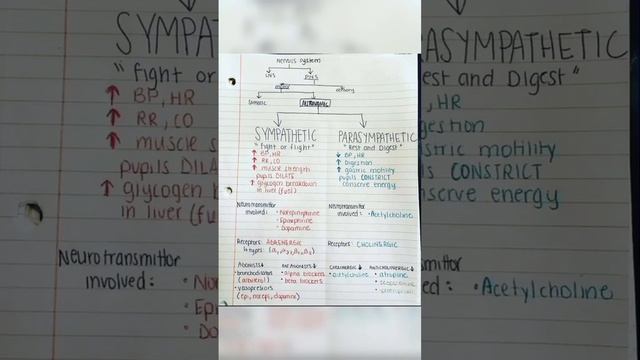 Nervous System
CNS PNS
motor sensory
somatic AUTONOMIC
SYMPATHETIC
"fight or flight"
↑ BP, HR
↑ RR, CO
↑ muscle strength
pupils DILATE
↑ glycogen breakdown
in liver (fuel)
Neurotransmitter
involved:
• Norepinephrine
• Epinephrine
• Dopamine
Receptors: ADRENERGIC
4 types:
AGONISTS ↓
• bronchodilators
(albuterol)
• vasopressors
(epi, norepi, dopamine)
ANTAGONISTS ↓
• alpha blockers
• beta blockers
PARASYMPATHETIC
"Rest and Digest"
↓ BP, HR
↑ Digestion
↑ gastric motility
pupils CONSTRICT
conserve energy
Neurotransmitter
involved: • Acetylcholine
Receptors: CHOLINERGIC
CHOLINERGIC ↓
• acetylcholine
ANTICHOLINERGIC ↓
• atropine
SYMPATHETIC
"fight or
↑ BP, HR
↑ RR, CO
↑ muscle s
pupils DILAT
↑ glycogen b
in liver (fu
Neurotransmitter
involved:
• No
• Epi
• Do
ARASYMPATHETIC
Rest and Digest"
, HR
gestion
stric motility
ls CONSTRICT
nserve energy
ed: • Acetylcholine